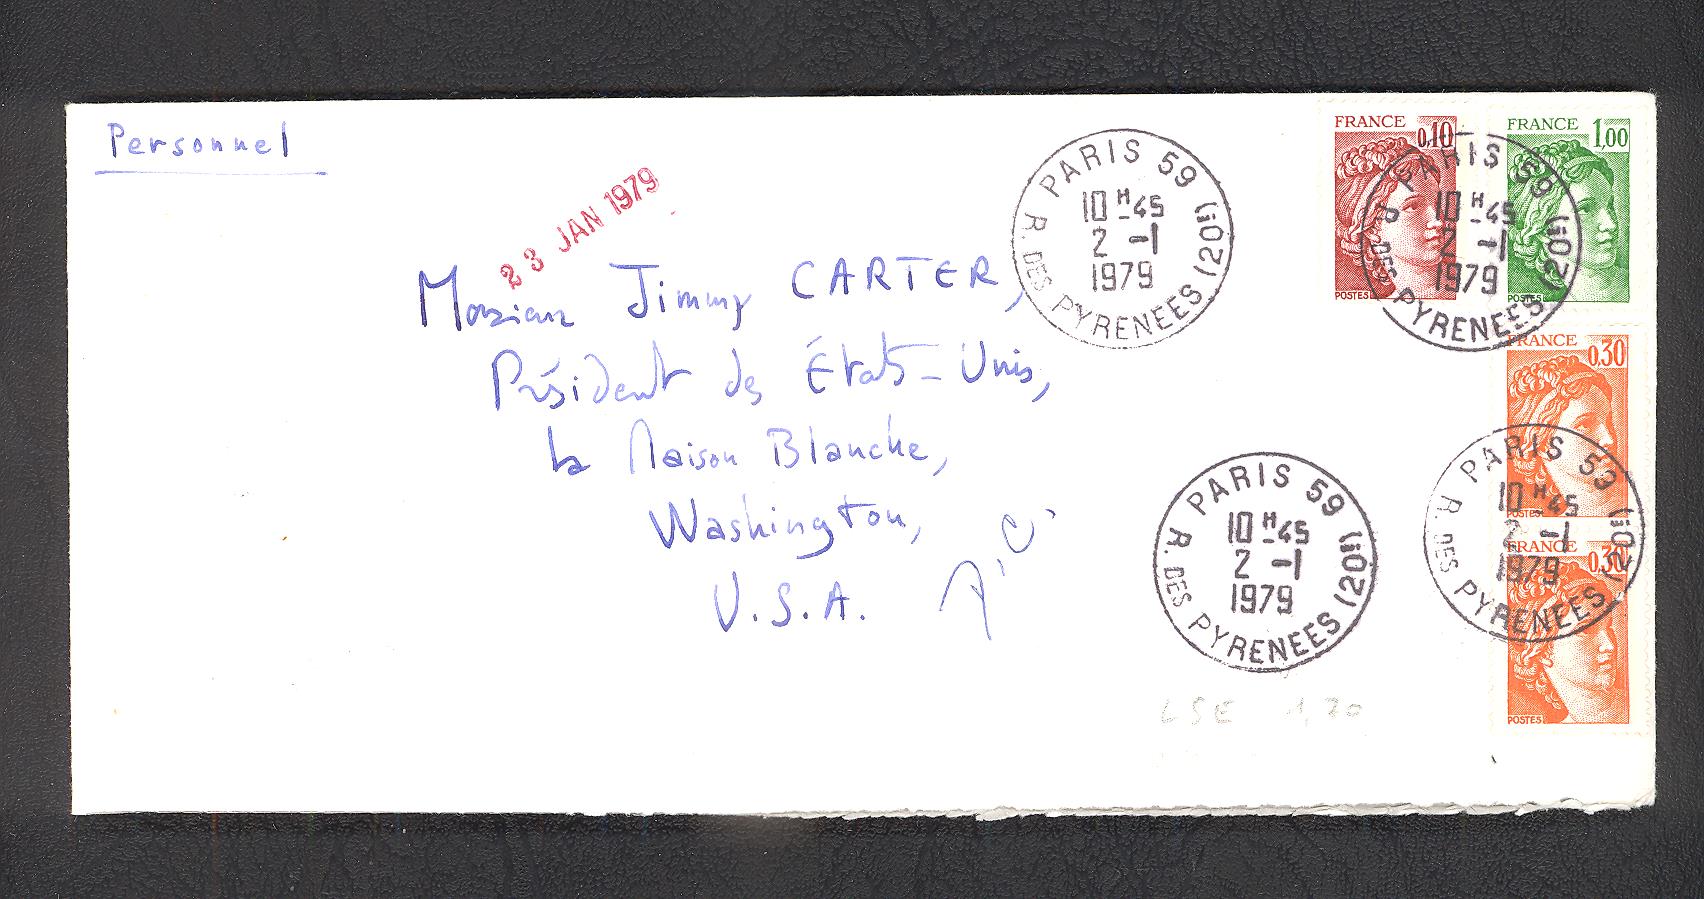 Personnel
23 JAN 1979
Monsieur Jimmy CARTER,
Président des États-Unis,
la Maison Blanche,
Washington,
U.S.A.
PARIS 59 (20E)
10 H 45
2 -1
1979
R. DES PYRENEES
FRANCE 0,10
POSTES
FRANCE 1,00
POSTES
PARIS 59 (20E)
10 H 45
2 -1
1979
R. DES PYRENEES
FRANCE 0,30
POSTES
FRANCE 0,30
POSTES
PARIS 59 (20E)
10 H 45
2 -1
1979
R. DES PYRENEES
PARIS 59 (20E)
10 H 45
2 -1
1979
R. DES PYRENEES
LSE 1,70